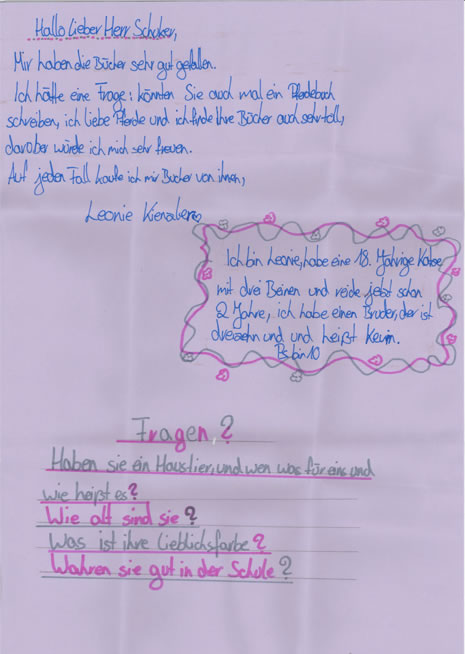 Hallo lieber Herr Schuker,
Mir haben die Bücher sehr gut gefallen.
Ich hätte eine Frage: könnten Sie auch mal ein Pferdebuch
schreiben, ich liebe Pferde und ich finde Ihre Bücher auch sehr toll,
darüber würde ich mich sehr freuen.
Auf jeden Fall kaufe ich mir Bücher von ihnen,
Leonie
Ich bin Leonie, habe eine 18. Jährige Katze
mit drei Beinen und reide jetzt schon
2 Jahre, ich habe einen Bruder, der ist
dreizehn und und heißt Kevin.
Ps bin 10
Fragen ?
Haben sie ein Haustier, und wen was für eins und
wie heißt es?
Wie alt sind sie ?
Was ist ihre Lieblichsfarbe ?
Wahren sie gut in der Schule ?